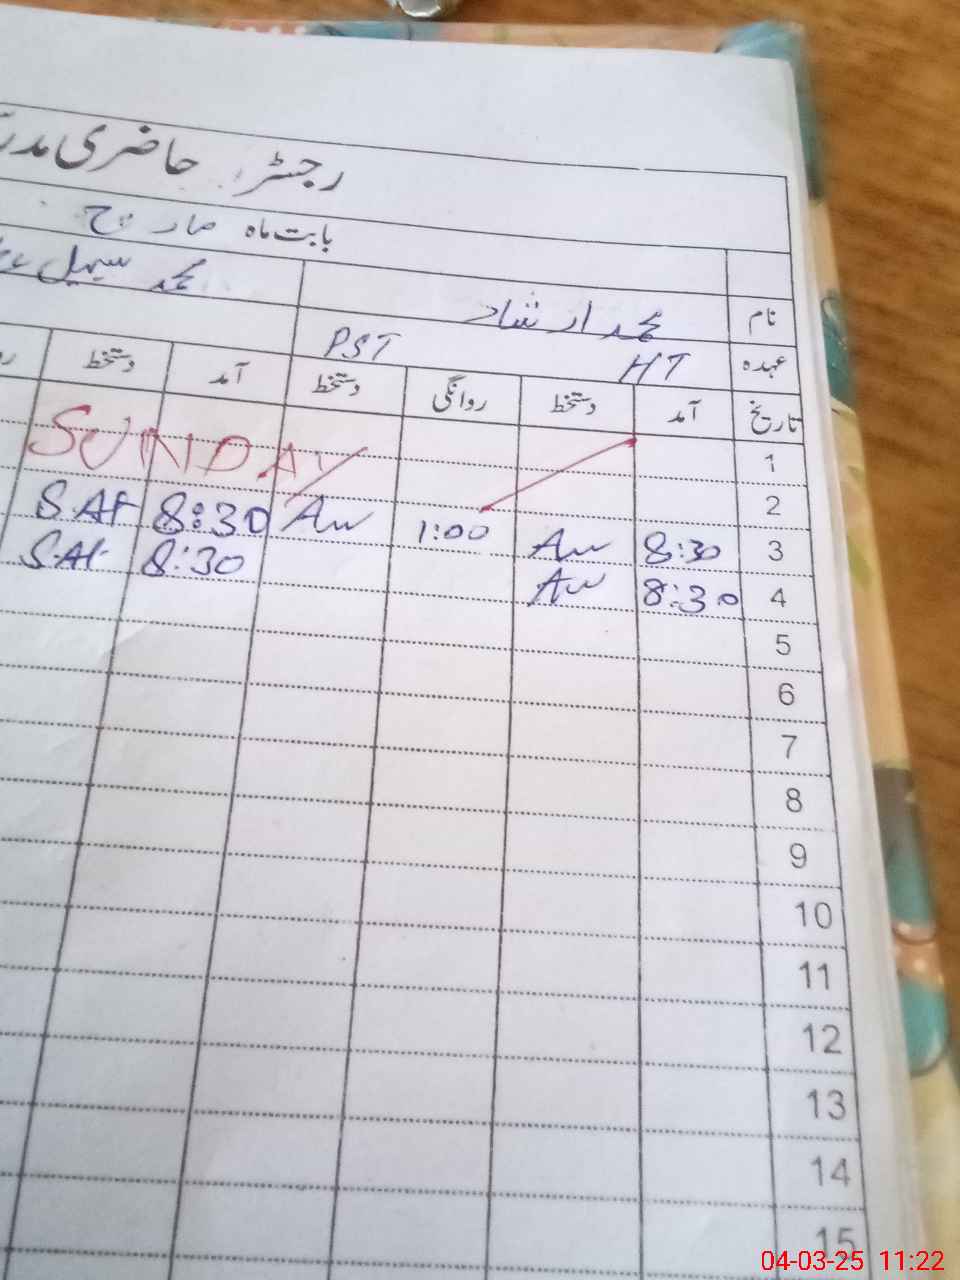 رجسٹر حاضری
بابت ماہ مارچ
نام محمد ارشاد محمد سہیل
عہدہ HT PST
تاریخ آمد دستخط روانگی دستخط آمد دستخط
1
2 SUNDAY
3 8:30 Aw 1:00 Aw 8:30 SAt
4 8:30 Aw 8:30 SAt
5
6
7
8
9
10
11
12
13
14
15
04-03-25 11:22